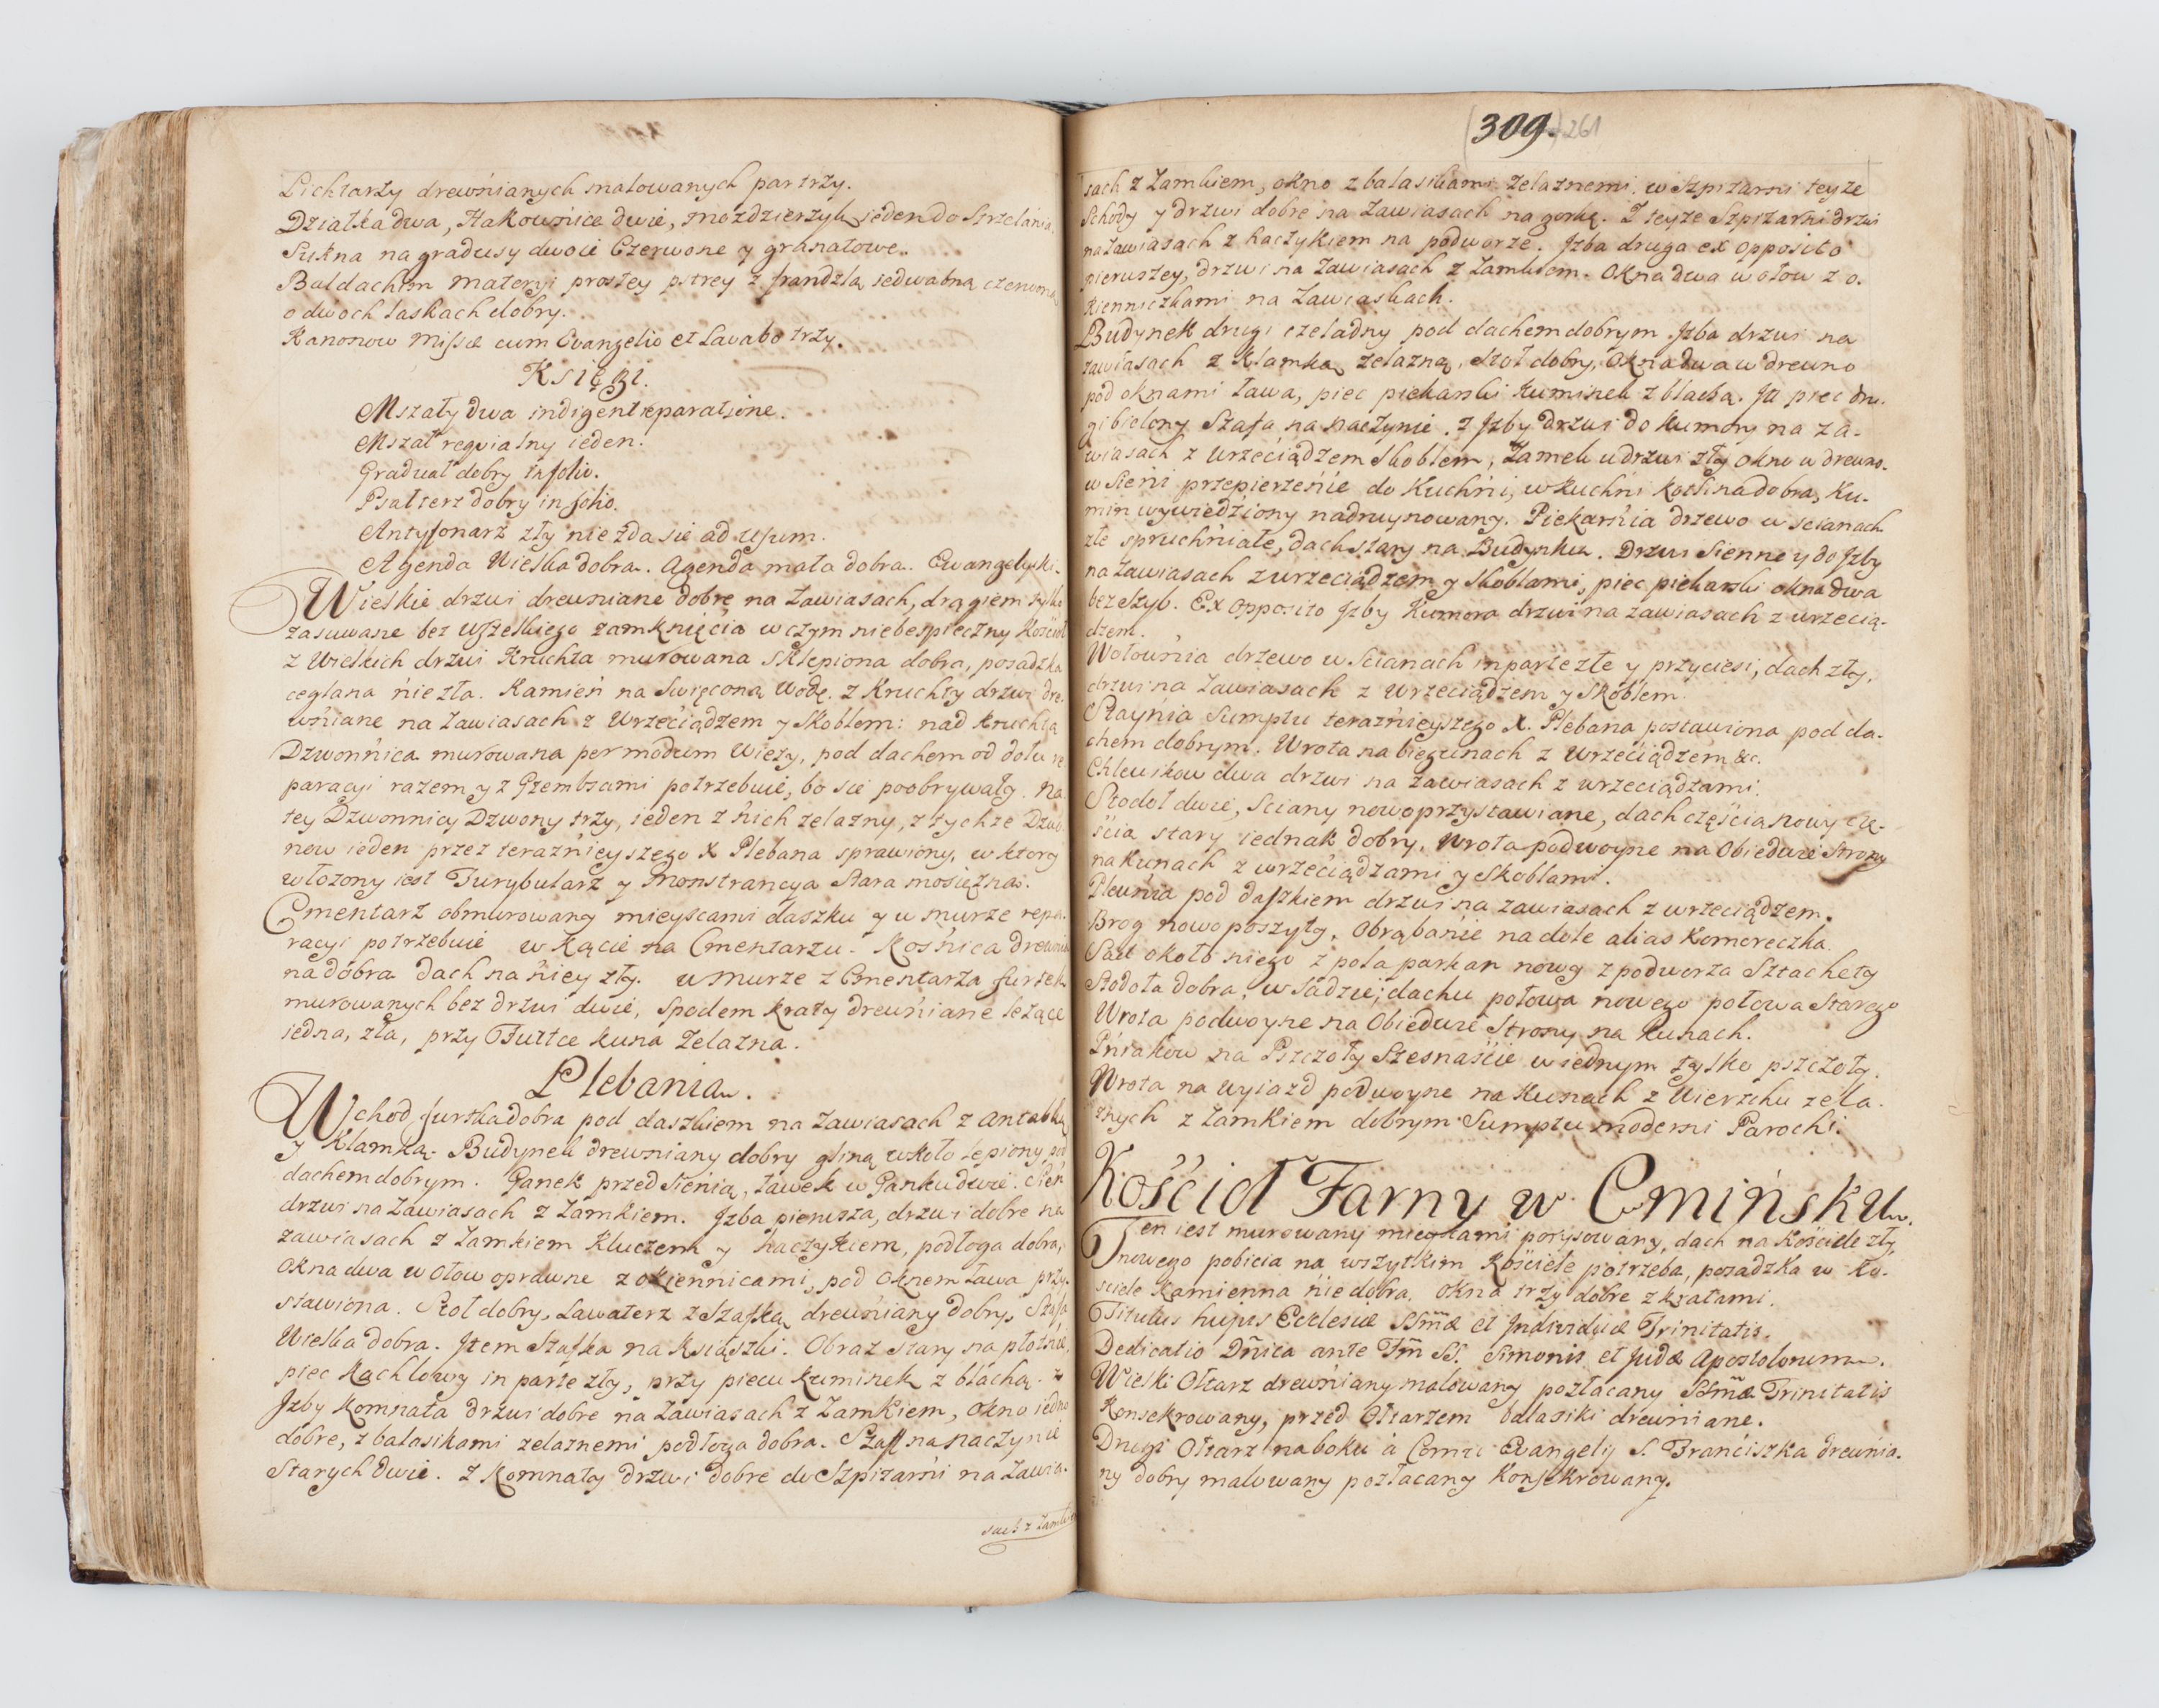 Lichtarzy drewnianych malowanych par trzy.
Działka dwa, Hakownice dwie, mozdzierzyk ieden do Strzelania.
Sukna na gradusy dwoie Czerwone y granatowe.
Baldachim materyi prostey pstrey z frandzlą iedwabną czerwoną
o dwoch laskach dobry.
Kanonow Missæ cum Evangelio et Lavabo trzy.
Księgi.
Mszały dwa indigent reparatione.
Mszał requialny ieden.
Graduał dobry in folio.
Psałterz dobry in folio.
Antyfonarz zły nie zda się ad usum.
Agenda Wielka dobra. Agenda mała dobra. Ewangelyski.
Wielkie drzwi drewniane dobre na Zawiasach, drągiem tylko
zasuwane bez wszelkiego zamknięcia w czym niebespieczny Kościoł
z Wielkich drzwi Kruchta murowana sklepiona dobra, posadzka
ceglana nie zła. Kamień na Swięconą Wodę. z Kruchty drzwi dre-
wniane na Zawiasach z Wrzeciądzem y Skoblem: nad Kruchtą
Dzwonnica murowana per modum Wieży, pod dachem od dołu re-
paracyi razem y z Gzembsami potrzebuie, bo się poobrywały. Na
tey Dzwonnicy Dzwony trzy, ieden z nich zelazny, z tychże Dzwo-
now ieden przez teraznieyszego X Plebana sprawiony, w ktory
włożony iest Turybularz y Monstrancya Stara mosiężna.
Cmentarz obmurowany mieyscami daszku y w murze repa-
racyi potrzebuie w Kącie na Cmentarzu. Kośnica drewnia
na dobra dach na niey zły. w Murze z Cmentarza furtek
murowanych bez drzwi dwie, spodem kraty drewniane leżące
iedna, zła, przy Furtce kuna Zelazna.
Plebania.
Wchod furtka dobra pod daszkiem na Zawiasach z antabką
y Klamką. Budynek drewniany dobry gliną wkoło lepiony pod
dachem dobrym. Ganek przed Sienią, ławek w Ganku dwie. Sień
drzwi na Zawiasach z Zamkiem. Jzba pierwsza, drzwi dobre na
zawiasach z Zamkiem Kluczem y haczykiem, podłoga dobra,
Okna dwa w Ołow oprawne z okiennicami, pod Oknem ława przy-
stawiona. Stoł dobry, Lawaterz z Szafką drewniany dobry, Szafa
Wielka dobra. Jtem Szafka na Ksiąszki. Obraz stary na płotnie,
piec Kachlowy in parte zły, przy piecu kuminek z blachą. z
Jzby Komnata drzwi dobre na Zawiasach z Zamkiem, okno iedno
dobre, z balasikami zelaznemi podłoga dobra. Szaf na naczynie
Starych dwie. z Komnaty drzwi dobre do Szpizarni na Zawia-
sach z Zamkiem
309. 261
sach z Zamkiem, okno z balasikami Zelaznemi. w Szpizarni teyże
Schody y drzwi dobre na Zawiasach na gorkę. Z teyże Szpizarni drzwi
na Zawiasach z haczykiem na podworze. Jzba druga ex opposito
pierwszey, drzwi na Zawiasach z Zamkiem. Okna dwa w ołow z o-
kienniczkami na Zawiaskach.
Budynek drugi czeladny pod dachem dobrym Jzba drzwi na
zawiasach z Klamką zelazną, Stoł dobry, Okna dwa w drewno
pod oknami ława, piec piekarski kuminek z blachą. Jt piec dru-
gi bielony Szafa na naczynie. z Jzby drzwi do kumory na Za-
wiasach z Wrzeciądzem Skoblem, Zamek u drzwi zły okno w drewno.
w Sieni przepierzenie do Kuchni, w kuchni kotlina dobra, Ku-
min wywiedziony nadruynowany. Piekarnia drzewo w scianach
złe spruchniałe, dach stary na Budynku. Drzwi Sienne y do Jzby
na Zawiasach z wrzeciądzem y Skoblami, piec piekarski okna dwa
bez szyb. Ex opposito Jzby Kumora drzwi na zawiasach z wrzecią-
dzem.
Wołownia drzewo w Scianach in parte złe y przyciesi, dach zły,
drzwi na Zawiasach z Wrzeciądzem y Skoblem.
Staynia Sumptu teraznieyszego X. Plebana postawiona pod da-
chem dobrym. Wrota na biegunach z Wrzeciądzem &c.
Chlewikow dwa drzwi na zawiasach z wrzeciądzami.
Stodoł dwie, Sciany nowo przystawiane, dach częścią nowy czę-
ścia stary iednak dobry, Wrota podwoyne na Obiedwie Strony
na Kunach z wrzeciądzami y Skoblami.
Plewnia pod daszkiem drzwi na zawiasach z wrzeciądzem.
Brog nowo poszyty, Obrąbanie na dole alias Komoreczka.
Sad około niego z pola parkan nowy z podworza Sztachety
Stodoła dobra, w Sadzie, dachu połowa nowego połowa Starego
Wrota podwoyne na Obiedwie Strony na Kunach.
Pniakow na Pszczoły Szesnaście w iednym tylko pszczoły.
Wrota na wyiazd podwoyne na Kunach z Wierzchu zela-
znych z Zamkiem dobrym Sumptu moderni Parochi.
Kościoł Farny w Cmińsku.
Ten iest murowany mieyscami porysowany, dach na Kościele zły,
nowego pobicia na wszytkim Kościele potrzeba, posadzka w Ko-
ściele Kamienna nie dobra, Okna trzy dobre z kratami.
Titulus hujus Ecclesiæ SSmæ et Jndividuæ Trinitatis.
Dedicatio Dnica ante Fm SS. Simonis et Judæ Apostolorum.
Wielki Ołtarz drewniany malowany pozłacany SSmæ Trinitatis
Konsekrowany, przed Ołtarzem balasiki drewniane.
Drugi Ołtarz na boku à Cornu Evangely S. Franciszka drewnia-
ny dobry malowany pozłacany Konsekrowany.